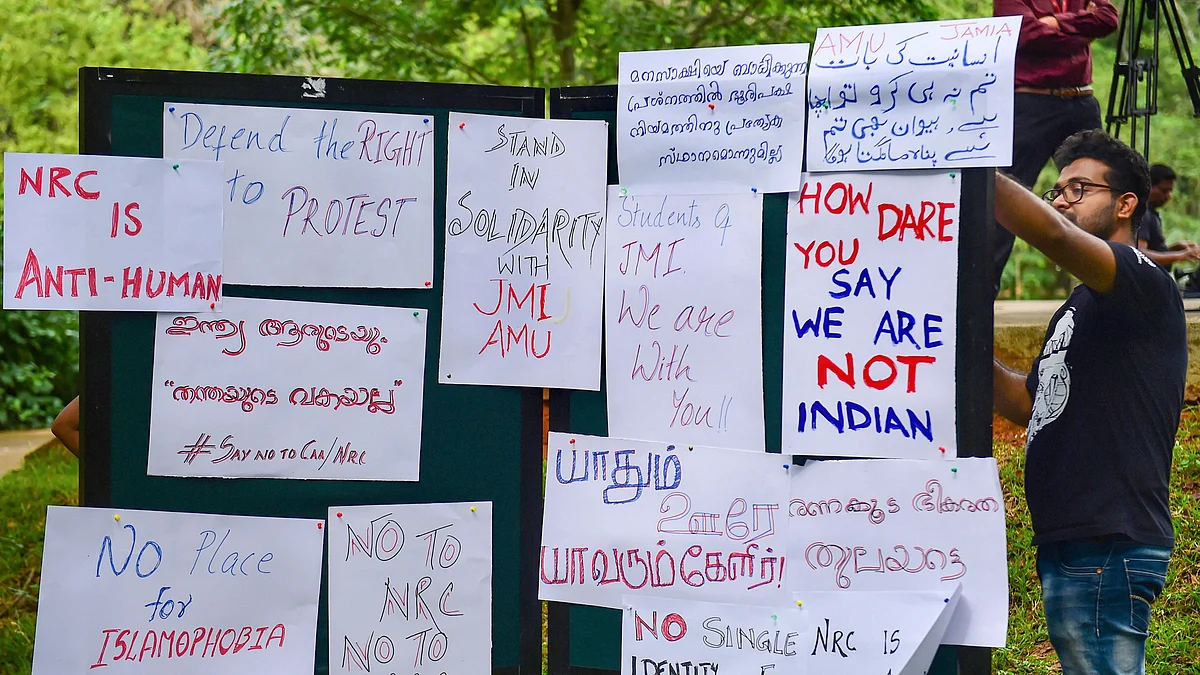 NRC
IS
ANTI-HUMAN
Defend the RIGHT
to
PROTEST
STAND
IN
SOLIDARITY
WITH
JMI
AMU
മനസാക്ഷിയെ ബാധിക്കുന്ന
പ്രശ്നത്തിൽ ഭൂരിപക്ഷ
നിയമത്തിനു പ്രത്യേക
സ്ഥാനമൊന്നുമില്ല
AMU JAMIA
انسانیت کی بات
تم نہ ہی کرو تو اچھا
ہے، حیوان بھی تم
سے پناہ مانگتا ہوگا
Students of
JMI.
We are
With
You!!
HOW DARE
YOU
SAY
WE ARE
NOT
INDIAN
ഇന്ത്യ ആരുടെയും
"തന്തയുടെ വകയല്ല"
#SAY NO TO CAA/NRC
யாதும்
ஊரே
யாவரும்கேளிர்!
ഭരണകൂട ഭീകരത
തുലയട്ടെ
No Place
for
ISLAMOPHOBIA
NO TO
NRC
NO TO
NO SINGLE
IDENTITY
NRC IS